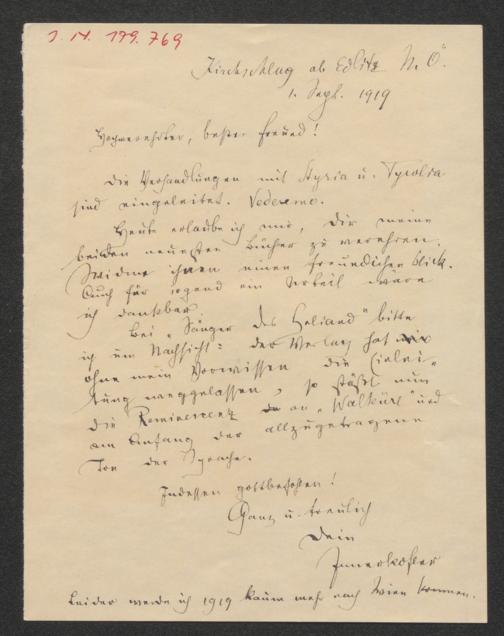 J. N. 179.769
Kirchschlag ab Edlitz N. Ö.
1. Sept. 1919
Hochverehrter, bester Freund!
Die Verhandlungen mit Styria u. Tyrolia
sind eingeleitet. Vederemo.
Heute erlaube ich mir, Dir meine
beiden neuesten Bücher zu verehren.
Widme ihnen einen freundlichen Blick.
Auch für irgend ein Urteil wäre
ich dankbar.
Bei „Sänger des Heliand" bitte
ich um Nachsicht: der Verlag hat mir
ohne mein Vorwissen die Einlei-
tung weggelassen, so stößt nun
die Reminiscenz an „Walküre" und
am Anfang der allzugetragene
Ton der Sprache.
Indessen gottbefohlen!
Ganz u. treulich
Dein
Innerkofler
Leider werde ich 1919 kaum mehr nach Wien kommen.